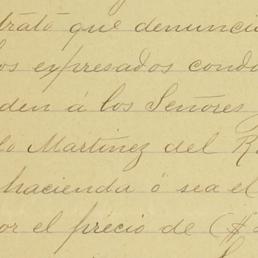 trato que denuncia
os expresados condu
den á los Señores
lo Martinez del R
hacienda ó sea el
or el précio de ($